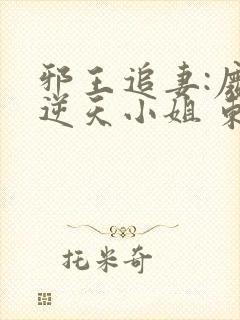 邪王追妻:
逆天小姐
托米奇